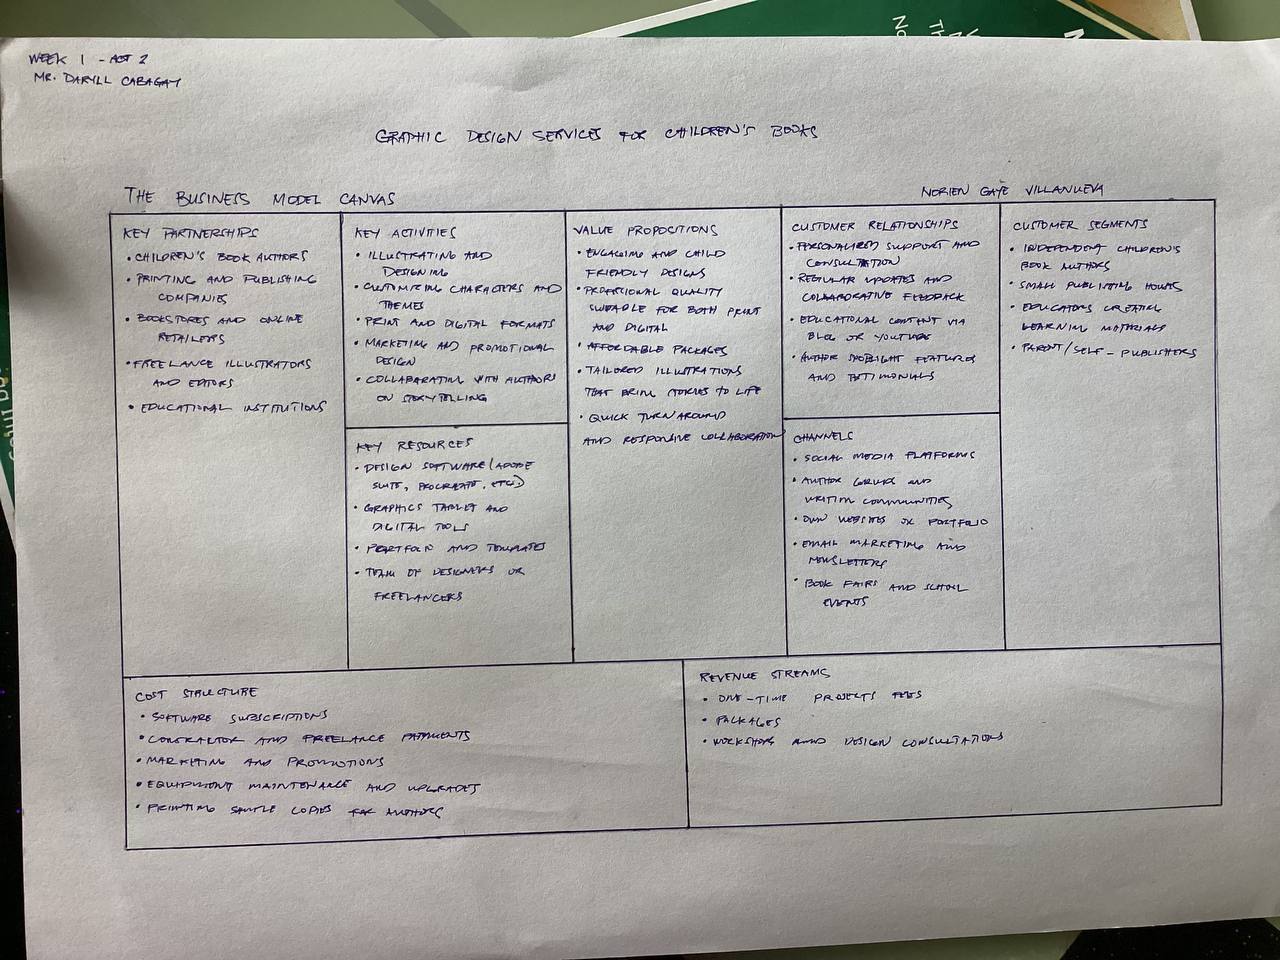 WEEK 1 - ACT 2
MR. DARYLL CABAGAY
GRAPHIC DESIGN SERVICES FOR CHILDREN'S BOOKS
THE BUSINESS MODEL CANVAS
NORIEN GAYE VILLANUEVA
KEY PARTNERSHIPS
• CHILDREN'S BOOK AUTHORS
• PRINTING AND PUBLISHING
COMPANIES
• BOOKSTORES AND ONLINE
RETAILERS
• FREELANCE ILLUSTRATORS
AND EDITORS
• EDUCATIONAL INSTITUTIONS
KEY ACTIVITIES
• ILLUSTRATING AND
DESIGNING
• CUSTOMIZING CHARACTERS AND
THEMES
• PRINT AND DIGITAL FORMATS
• MARKETING AND PROMOTIONAL
DESIGN
• COLLABORATING WITH AUTHORS
ON STORYTELLING
KEY RESOURCES
• DESIGN SOFTWARE (ADOBE
SUITE, PROCREATE, ETC.)
• GRAPHICS TABLET AND
DIGITAL TOOLS
• PORTFOLIO AND TEMPLATES
• TEAM OF DESIGNERS OR
FREELANCERS
VALUE PROPOSITIONS
• ENGAGING AND CHILD
FRIENDLY DESIGNS
• PROFESSIONAL QUALITY
SUITABLE FOR BOTH PRINT
AND DIGITAL
• AFFORDABLE PACKAGES
• TAILORED ILLUSTRATIONS
THAT BRING STORIES TO LIFE
• QUICK TURNAROUND
AND RESPONSIVE COLLABORATION
CUSTOMER RELATIONSHIPS
• PERSONALIZED SUPPORT AND
CONSULTATION
• REGULAR UPDATES AND
COLLABORATIVE FEEDBACK
• EDUCATIONAL CONTENT VIA
BLOG OR YOUTUBE
• AUTHOR SPOTLIGHT FEATURES
AND TESTIMONIALS
CHANNELS
• SOCIAL MEDIA PLATFORMS
• AUTHOR GROUPS AND
WRITING COMMUNITIES
• OWN WEBSITES OR PORTFOLIO
• EMAIL MARKETING AND
NEWSLETTERS
• BOOK FAIRS AND SCHOOL
EVENTS
CUSTOMER SEGMENTS
• INDEPENDENT CHILDREN'S
BOOK AUTHORS
• SMALL PUBLISHING HOUSES
• EDUCATORS CREATING
LEARNING MATERIALS
• PARENT/SELF-PUBLISHERS
COST STRUCTURE
• SOFTWARE SUBSCRIPTIONS
• CONTRACTOR AND FREELANCE PAYMENTS
• MARKETING AND PROMOTIONS
• EQUIPMENT MAINTENANCE AND UPGRADES
• PRINTING SAMPLE COPIES FOR AUTHORS
REVENUE STREAMS
• ONE-TIME PROJECTS FEES
• PACKAGES
• WORKSHOPS AND DESIGN CONSULTATIONS